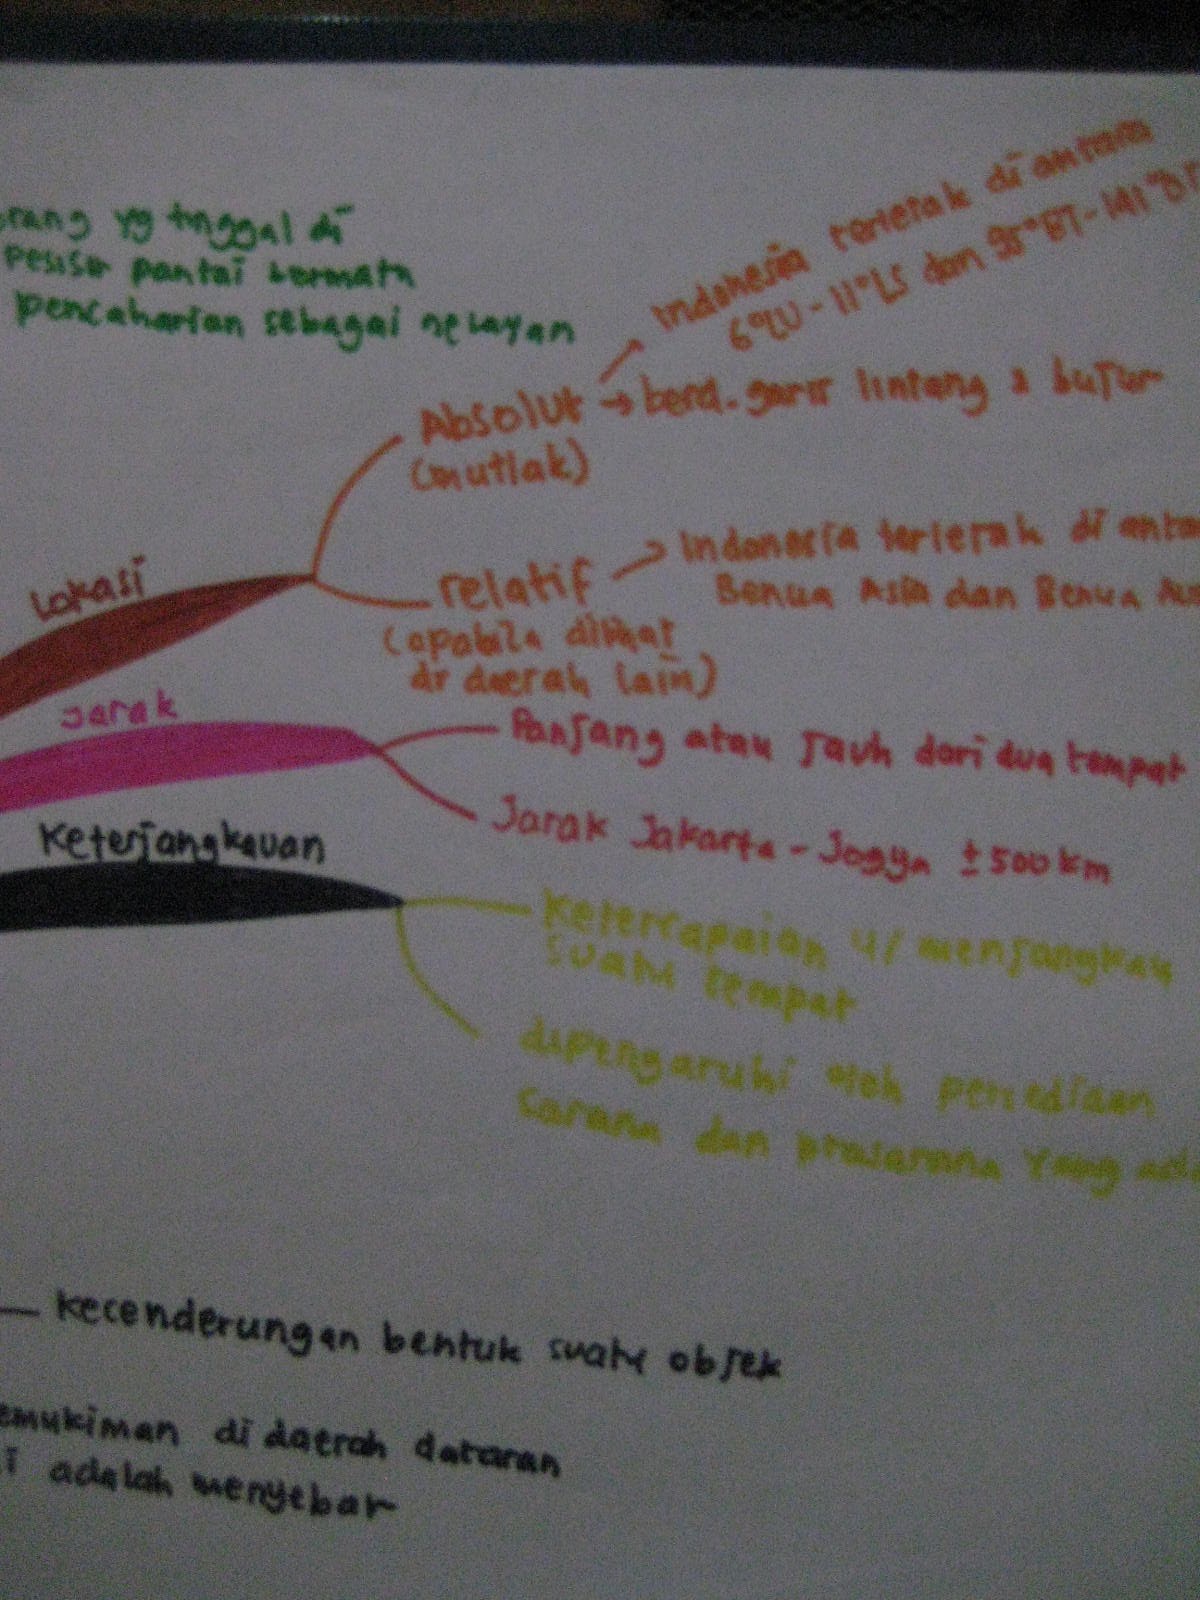 orang yg tinggal di
pesisir pantai bermata
pencaharian sebagai nelayan
Indonesia terletak di antara
6°LU - 11°LS dan 95°BT - 141°BT
Absolut → berd. garis lintang & bujur
(mutlak)
Lokasi
relatif → Indonesia terletak di anta
Benua Asia dan Benua Aus
(apabila dilihat
dr daerah lain)
Jarak
Panjang atau jauh dari dua tempat
Jarak Jakarta - Jogya ± 500 km
Keterjangkauan
Ketercapaian u/ menjangkau
suatu tempat
dipengaruhi oleh persediaan
sarana dan prasarana yang ada
kecenderungan bentuk suatu objek
emukiman di daerah dataran
i adalah menyebar